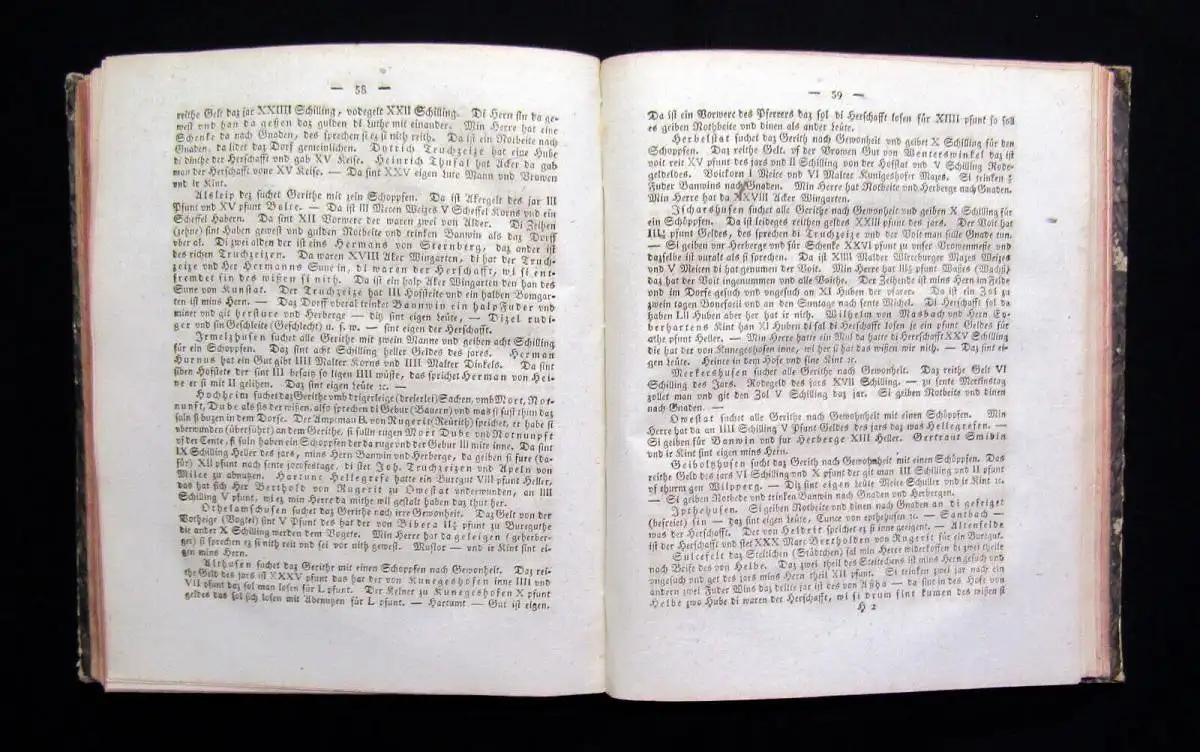 — 58 —
reithe Gelt daz jar XXIIII Schilling, vodegelt XXII Schilling. Di Hern sin da ge-
west und han da gessen daz gulden di Luthe mit einander. Min Herre hat eine
Schenke da nach Gnaden, des sprechen si ez si nith reith. Da ist ein Notbeite nach
Gnaden, da lidet daz Dorf gemeinlichen. Dytrich Truchzeize hat eine Hube
di dinthe der Herschafft und gab XV Keise. Heinrich Thusal hat Acker da gab
man der Herschafft vone XV Keise. — Da sint XXV eigen Lute Mann und Vrowen
und ir Kint.
Alsleip dez suchet Gerithe mit zein Schopfen. Da ist Akergelt des jar III
Pfunt und XV pfunt Bolte. — Da ist III Metzen Weizes V Scheffel Korns und ein
Scheffel Habern. Da sint XII Vorwerc der waren zwei von Alder. Di Zeihen
(zehne) sint Haben gewest und gulden Notbeite und trinken Banwin als daz Dorff
vber al. Di zwei alden der ist eins Hermans von Sternberg, daz ander ist
des richen Truchzeizen. Da waren XVIII Aker Wingarten, di hat der Truch-
zeize und Her Hermanns Sunein, di waren der Herschafft, wi si ent-
fremdet sin des wißen si nith. Da ist ein halp Aker Wingarten den han des
Sune von Kunstat. Der Truchzeize hat III Hofsteite und ein halben Bomgar-
ten ist mins Hern. — Daz Dorff vberal trinket Bannwin ein halp Fuder und
miner und git hersture und Herberge — diz sint eigen Leute, — Dizel rudi-
ger und sin Geschleite (Geschlecht) u. s. w. — sint eigen der Herschafft.
Irmelzhusen suchet alle Gerithe mit zwein Manne und geiben acht Schilling
für ein Schopfen. Daz sint acht Schilling heller Geldes des jares. Herman
Hurnus hat ein Gut gibt IIII Malter Korns und IIII Malter Dinkels. Da sint
siben Hofstete der sint III besatz so ligen IIII wüste, daz sprichet Herman von Hei-
ne er si mit II gelihen. Daz sint eigen Leute ꝛc. —
Hochheim suchet daz Gerithe umb drigerleige (dreierlei) Sachen, vmb Mort, Not-
nunft, Dube als sis der wißen, also sprechen di Gebur (Bauern) und maz si sust thun daz
suln si buzen in dem Dorfe. Der Amptman B. von Rugerit (Reurith) speichet, er habe si
uberwunden (überführt) an dem Gerithe, si sulln rugen Mort Dube und Notnunpft
vf der Cente, si suln haben ein Schopfen der da ruge und der Gebur III mite inne. Da sint
IX Schilling Heller des jars, mins Hern Banwin und Herberge, da geiben si fure (da-
für) XII pfunt nach sente jocofstage, di ist Joh. Truchzeizen und Apeln von
Milcz zu abnutzen. Hartunc Hellegrefe hatte ein Burggut VIII pfunt Heller,
das hat sich Her Berthold von Rugerit zu Owestat underwunden, an IIII
Schilling V pfunt, wi ez min Herre da mithe wil gestalt haben daz thut her.
Othelmschusen suchet daz Gerithe nach irre Gewonheit. Daz Gelt von der
Votheige (Vogtei) sint V Pfunt des hat der von Bibera II½ pfunt zu Burgguthe
die ander X Schilling werden dem Vogete. Min Herre hat da geleigen (geherber-
get) si sprechen ez si nith reit und sei vor nith gewest. Mustor — und ir Kint sint ei-
gen mins Hern.
Althusen suchet daz Gerithe mit einen Schopfen nach Gewonheit. Daz rei-
the Geld des jars ist XXXV pfunt das hat der von Kunegeshofen inne IIII und
VII pfunt daz sol man losen für L pfunt. Der Kelner zu Kunegeshofen X pfunt
geldes das sol sich losen mit Abenutzen für L pfunt. — Hartumt — Gut ist eigen.
— 59 —
Da ist ein Vorwerc des Pferrers daz sol di Herschafft losen für XIIII pfunt so soll
es geiben Nothbeite und dinen als ander Leute.
Herbelstat suchet daz Gerith nach Gewonheit und geibet X Schilling für den
Schopfen. Daz reithe Geld, vf der Vrowen Gut von Wenterswinkel daz ist
voit reit XV pfunt des jars und II Schilling von der Hofstat und V Schilling Rode-
geldeldes. Voitkorn I Meitze und VI Malter Kunigeshofer Mazes. Si trinken ½
Fuder Banwins nach Gnaden. Min Herre hat Notbeite und Herberge nach Gnaden.
Min Herre hat da XXVIII Acker Wingarten.
Ischarshusen suchet alle Gerithe nach Gewonheit und geiben X Schilling für
ein Schöpfen. Da ist leideges reithen geldes XXIII pfunt des jares. Der Voit hat
III½ pfunt Geldes, des sprechen di Truchzeize und der Voit man sulle Gnade tun.
— Si geiben vur Herberge und für Schenke XXVI pfunt zu unser Vrowenmesse und
dazselbe ist uuralt als si sprechen. Da ist XIIII Malder Wirceburger Mazes Weizes
und V Meitzen di hat genumen der Voit. Min Herre hat II½ pfunt Waßes (Wachs)
daz hat der Voit ingenummen und alle Voithe. Der Zeihende ist mins Hern im Felde
und im Dorfe gesuch und ungesuch an XI Huben der pfarer. Da ist ein Zol zu
zwein tagen Bonefacii und an den Suntage nach sente Michel. Di Herschafft sol da
haben LII Huben aber her hat ir nith. Wilhelm von Masbach und Hern Ey-
berhartens Kint han XI Huben di sal di Herschafft losen je ein pfunt Geldes für
athe pfunt Heller. — Min Herre hatte ein Mul da hatte di Herreschafft XXV Schilling
die hat der von Kunegeshofen inne, wi her si hat das wißen wir nith. — Daz sint ei-
gen Leute. Heince in dem Hofe und sine Kint ꝛc.
Merkershusen suchet alle Gerithe nach Gewonheit. Daz reithe Gelt VI
Schilling des Jars. Rodegeld des jars XVII Schilling. — zu sente Mertinstag
zollet man und git den Zol V Schilling daz jar. Si geiben Notbeite und dinen
nach Gnaden. —
Owestat suchet alle Gerithe nach Gewohnheit mit einen Schöpfen. Min
Herre hat da an IIII Schilling V Pfunt Geldes des jars daz was Hellegrefen. —
Si geiben für Banwin und fur Herberge XIII Heller. Gertraut Smidin
und ir Kint sint eigen mins Hern.
Geibolzhusen sucht daz Gerith nach Gewohnheit mit einen Schöpfen. Das
reithe Geld des jars VI Schilling und X pfunt der git man III Schilling und II pfunt
vf thurm gen Wiltperg. — Diz sint eigen Leute Meise Schuller und ir Kint ꝛc.
— Si geiben Notbede und trinken Banwin nach Gnaden und Herbergen.
Ipthehusen. Si geiben Notbeite und dinen nach Gnaden an di gefriget
(befreiet) sin — daz sint eigen Leute, Cunce von epthehusen ꝛc. — Santbach —
was der Herschafft. Der von Heldrit sprichet ez si inne geeigent. — Altenfelde
ist der Herschafft und stet XXX Marc Bertholden von Rugerit für ein Burggut.
Sulcefelt daz Steitlichen (Städtchen) sal min Herre widerkoffen di zwei theile
nach Beise des von Helbe. Daz zwei theil des Steitechens ist mins Hern gesuch und
ungesuch und get des jars mins Hern theil XII pfunt. Si trinken zwei jar nach ein
andern zwei Fuder Wins daz dritte jar ist des von Asha — da sint in des Hofe von
Helbe zwo Hube di waren der Herschafft, wi si drum sint kumen des wißen si
H 2